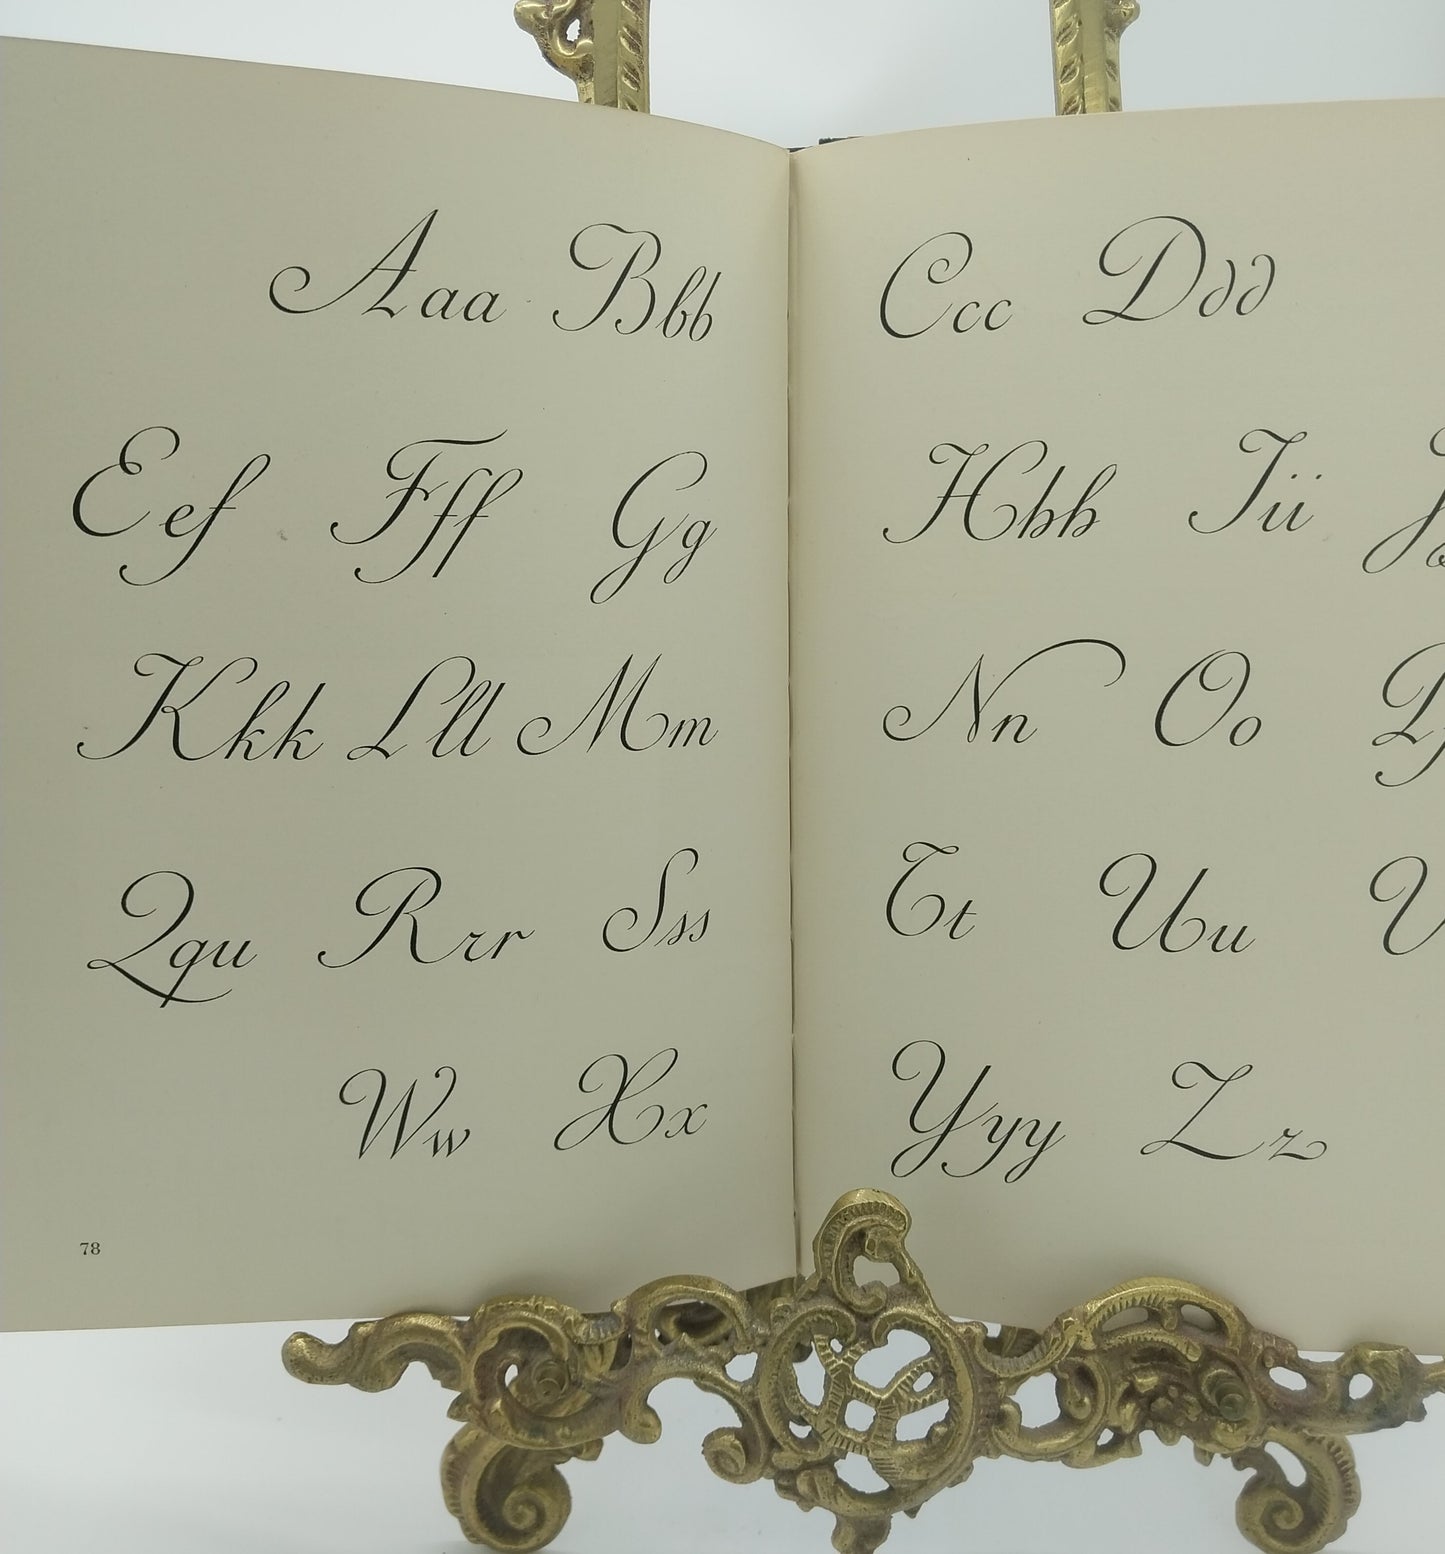 Aaa Bbb
Eef Fff Gg
Kkk Lll Mm
Qqu Rrr Sss
Ww Xx
78
Ccc Ddd
Hhh Iii
Nn Oo
Tt Uu V
Yyy Zz